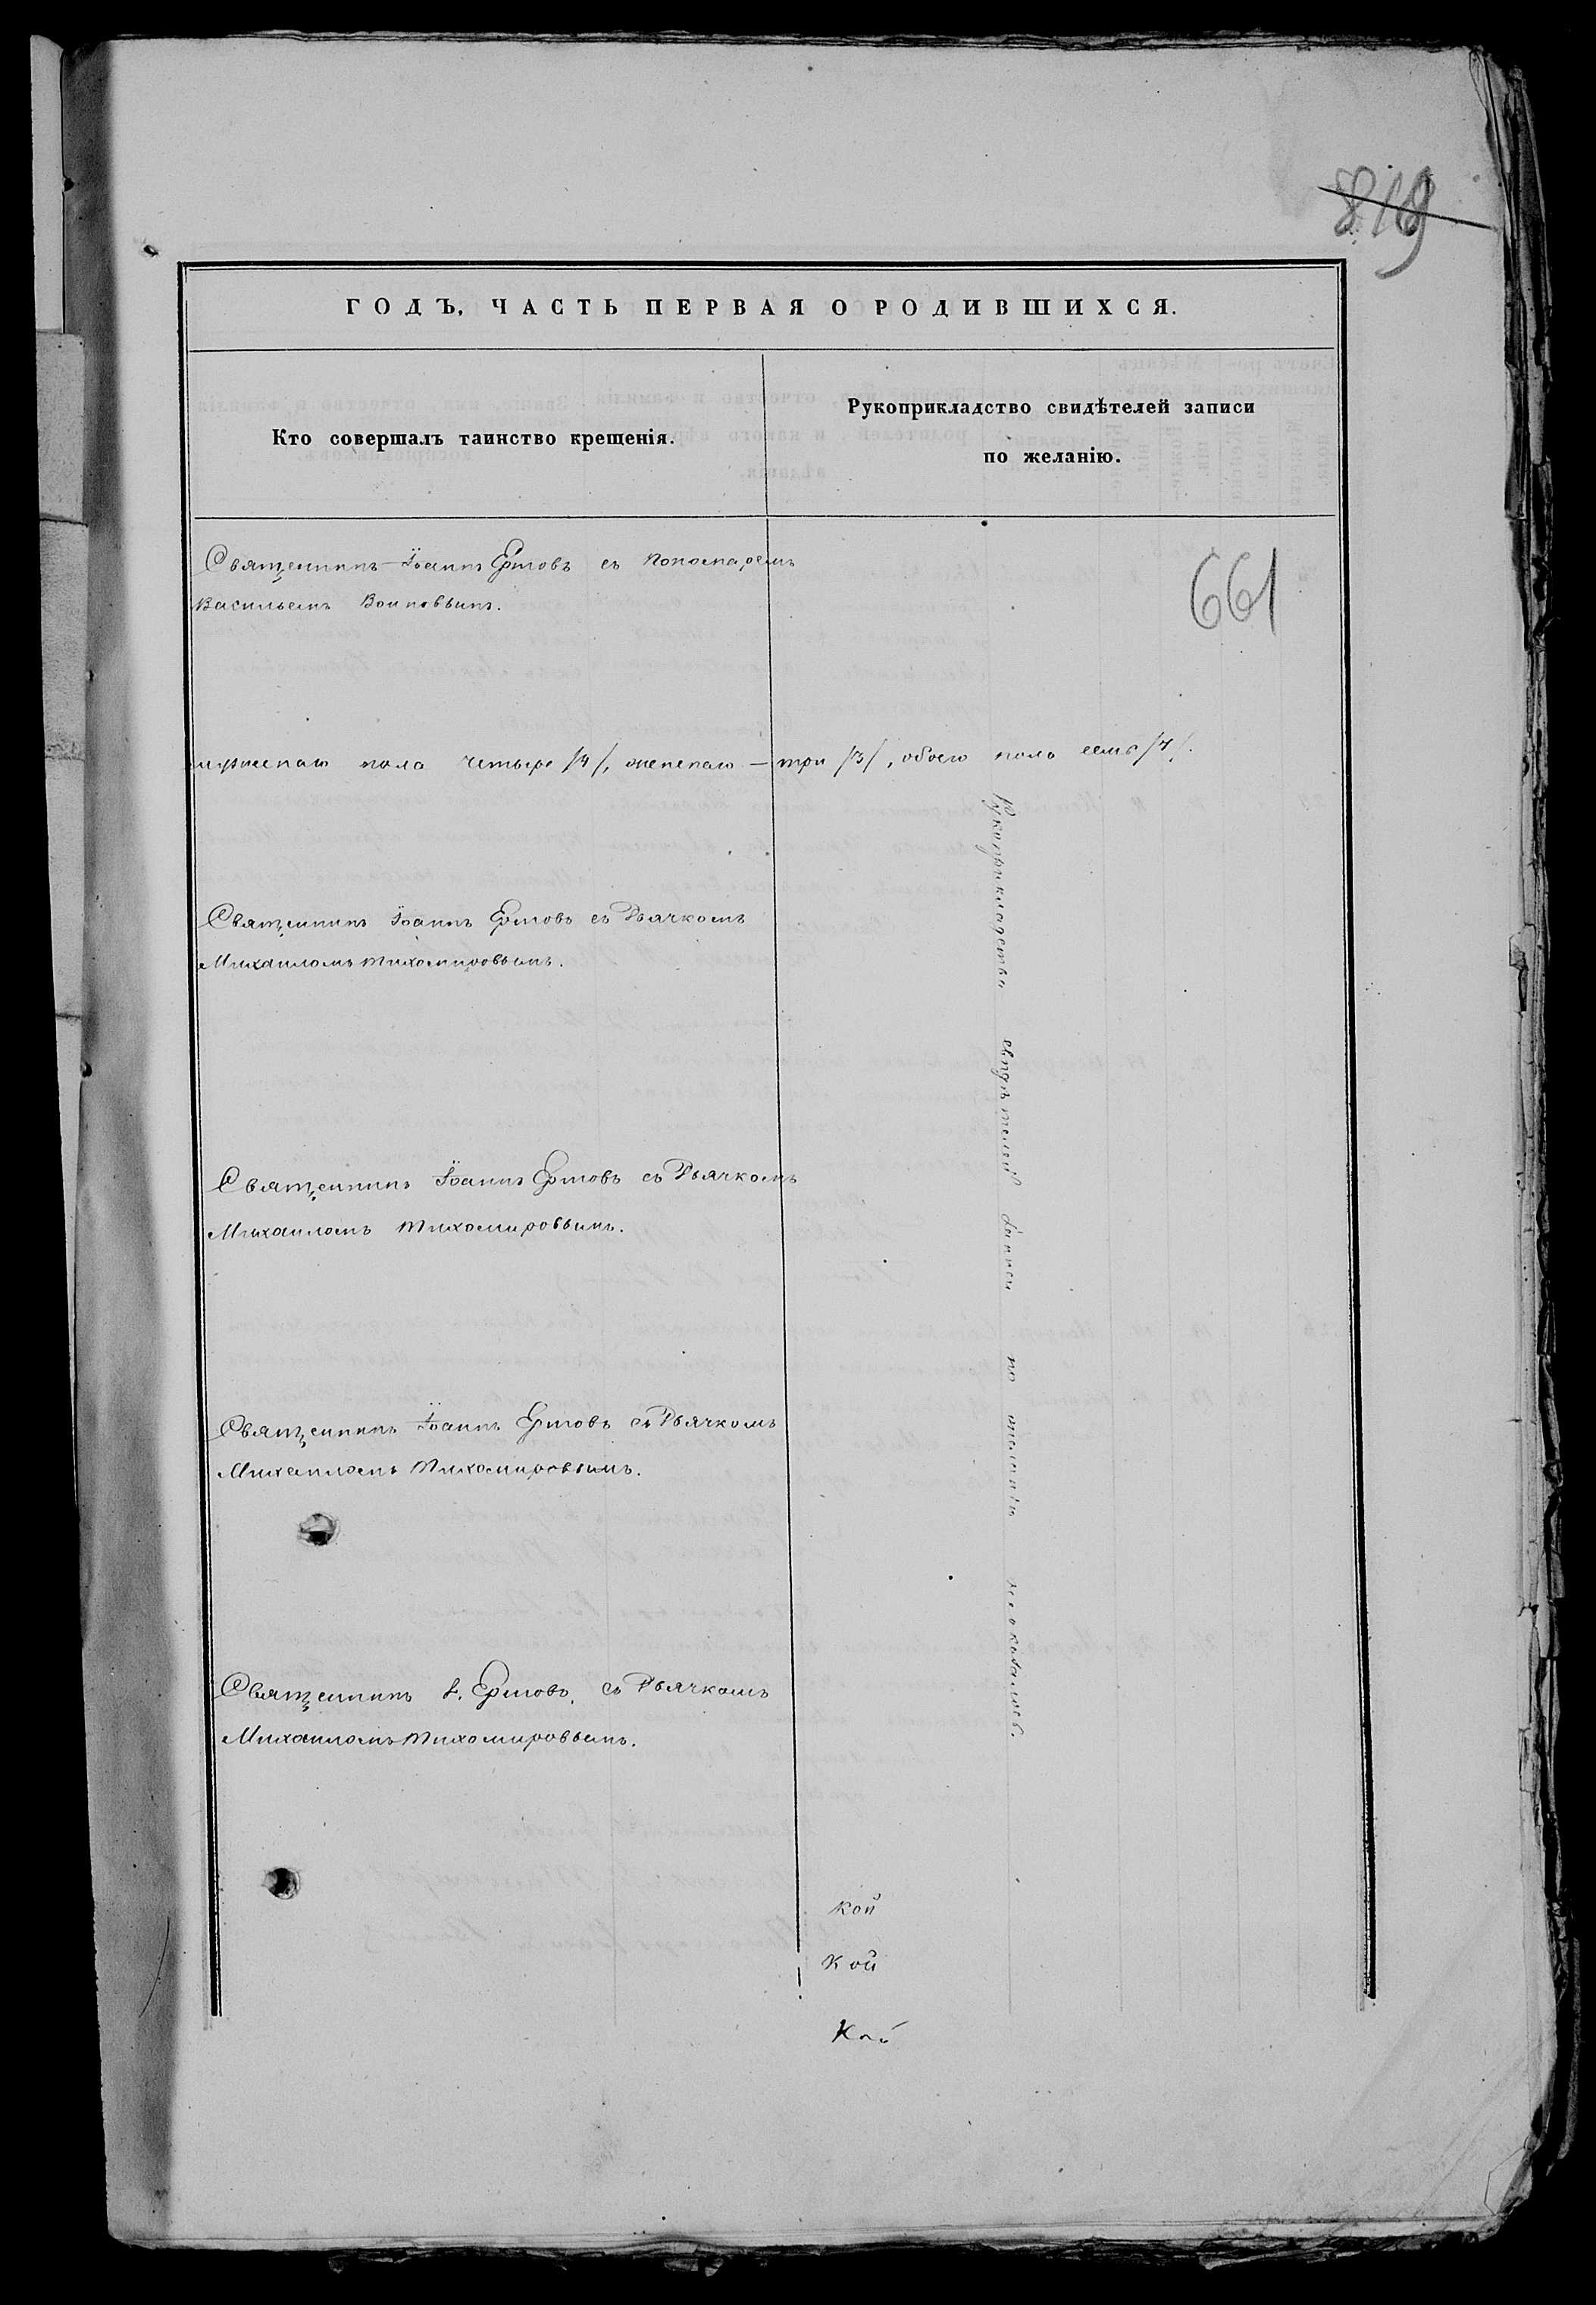 819
ГОДЪ, ЧАСТЬ ПЕРВАЯ О РОДИВШИХСЯ.
Кто совершалъ таинство крещенія.
Рукоприкладство свидѣтелей записи
по желанію.
661
Священникъ Іоаннъ Ершовъ съ Пономаремъ
Васильемъ Воиновымъ.
мужескаго пола четыре /4/, женскаго — три /3/, обоего пола семь /7/.
Священникъ Іоаннъ Ершовъ съ Дьячкомъ
Михаиломъ Тихомировымъ.
Священникъ Іоаннъ Ершовъ съ Дьячкомъ
Михаиломъ Тихомировымъ.
Священникъ Іоаннъ Ершовъ съ Дьячкомъ
Михаиломъ Тихомировымъ.
Священникъ І. Ершовъ, съ Дьячкомъ
Михаиломъ Тихомировымъ.
Рукоприкладства свидѣтелей записи по желанію не оказалось.
кой
кой
кой